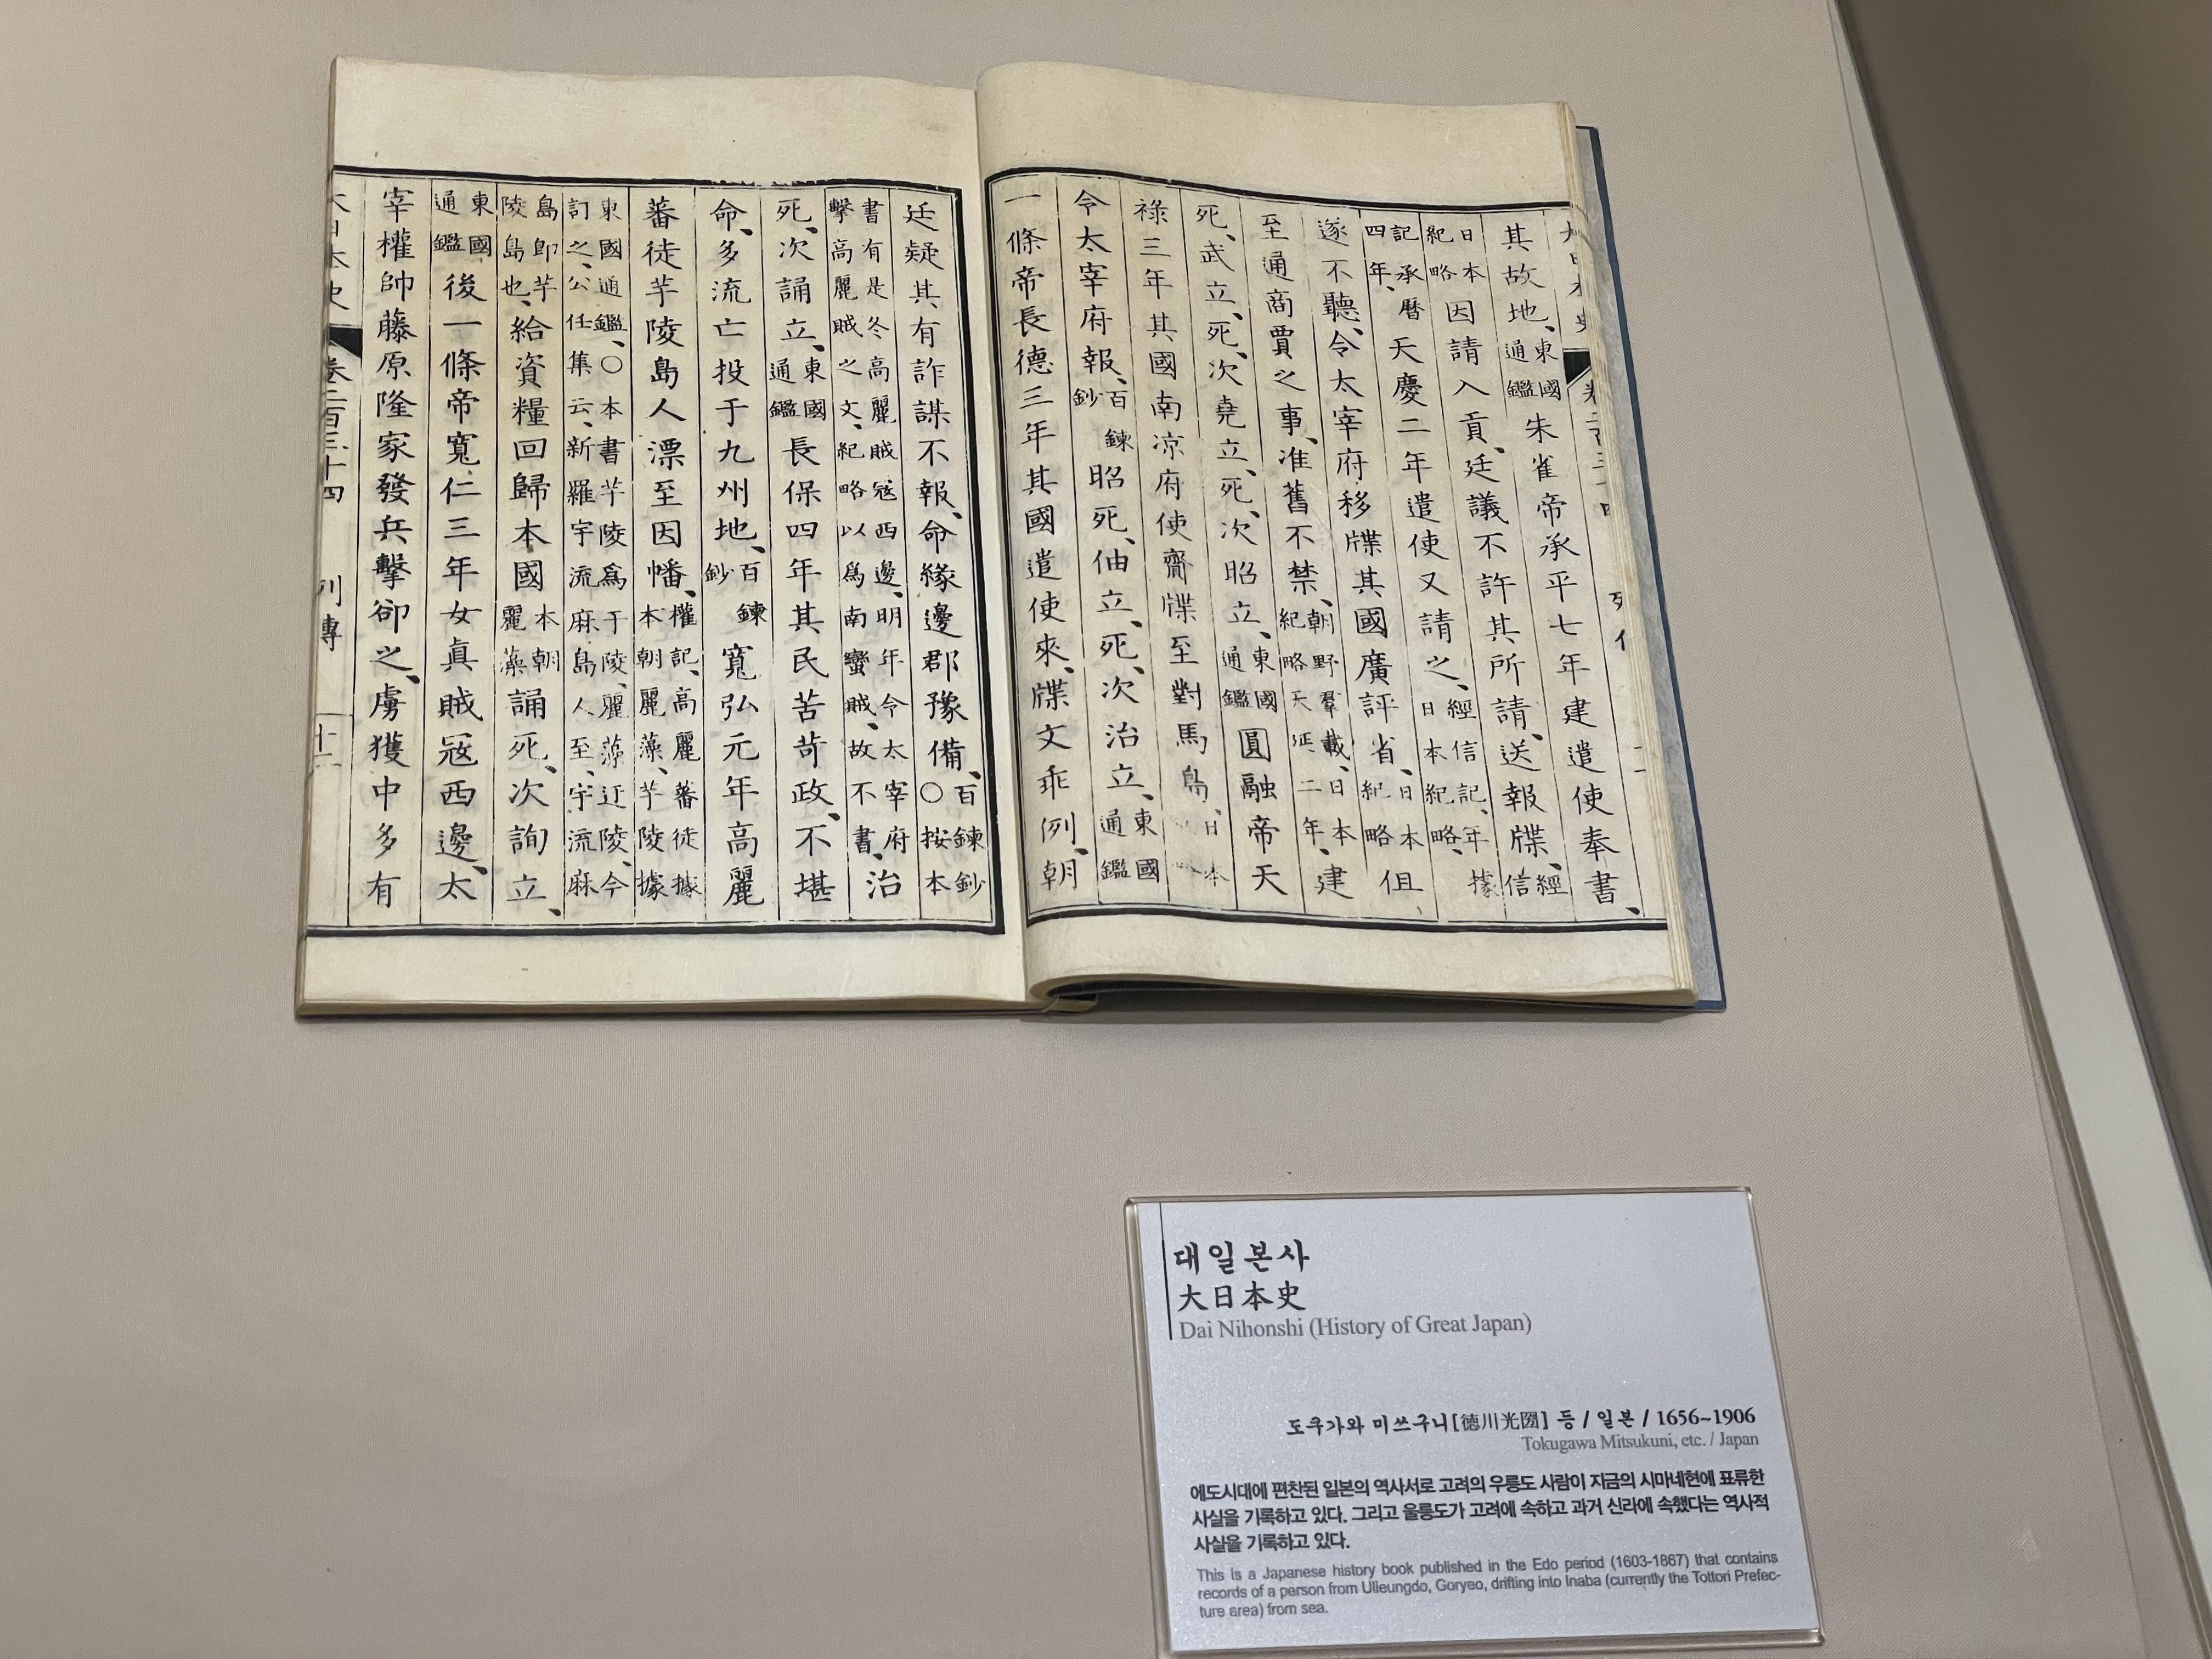 其故地、東國通鑑朱雀帝承平七年建遣使奉書、
日本紀略因請入貢、廷議不許其所請、送報牒、經信
記承曆四年、天慶二年遣使又請之、經信記、年據日本紀略、
遂不聽、令太宰府移牒其國廣評省、日本紀略但
至通商賈之事、准舊不禁、朝野羣載、日本紀略天延二年、建
死、武立、死、次堯立、死、次昭立、東國通鑑圓融帝天
祿三年其國南凉府使齎牒至對馬島、日本
令太宰府報、百鍊鈔昭死、伷立、死、次治立、東國通鑑
一條帝長德三年其國遣使來、牒文乖例、朝
廷疑其有詐謀不報、命緣邊郡豫備、百鍊鈔〇按本
書有是冬高麗賊寇西邊、明年令太宰府擊高麗賊之文、紀略以爲南蠻賊、故不書、治
死、次誦立、東國通鑑長保四年其民苦苛政、不堪
命、多流亡投于九州地、百鍊鈔寬弘元年高麗
蕃徒芋陵島人漂至因幡、權記、高麗蕃徒據本朝麗藻、芋陵據
東國通鑑、〇本書芋陵爲于陵、麗藻迂陵、今訂之、公任集云、新羅宇流麻島人至、宇流麻
島卽芋陵島也、給資糧回歸本國本朝麗藻誦死、次詢立、
東國通鑑後一條帝寬仁三年女眞賊寇西邊、太
宰權帥藤原隆家發兵擊卻之、虜獲中多有
大日本史 卷二百三十四 列傳
대일본사
大日本史
Dai Nihonshi (History of Great Japan)
도쿠가와 미쓰구니[徳川光圀] 등 / 일본 / 1656~1906
Tokugawa Mitsukuni, etc. / Japan
에도시대에 편찬된 일본의 역사서로 고려의 우릉도 사람이 지금의 시마네현에 표류한
사실을 기록하고 있다. 그리고 울릉도가 고려에 속하고 과거 신라에 속했다는 역사적
사실을 기록하고 있다.
This is a Japanese history book published in the Edo period (1603-1867) that contains
records of a person from Ulleungdo, Goryeo, drifting into Inaba (currently the Tottori Prefec-
ture area) from sea.